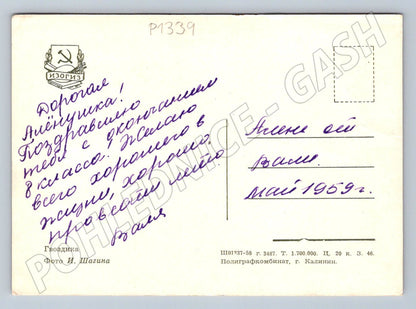 P1339
ИЗОГИЗ
Дорогая
Алёнушка!
Поздравляю
тебя с окончанием
8 класса. Желаю
всего хорошего в
жизни, хорошо
провести лето
Валя
Алене от
Вали.
май 1959 г.
Гвоздика
Фото И. Шагина
Ш01237-58 г. 3447. Т. 1.700.000. Ц. 20 к. З. 46.
Полиграфкомбинат, г. Калинин.
POHLEDNICE - GASH